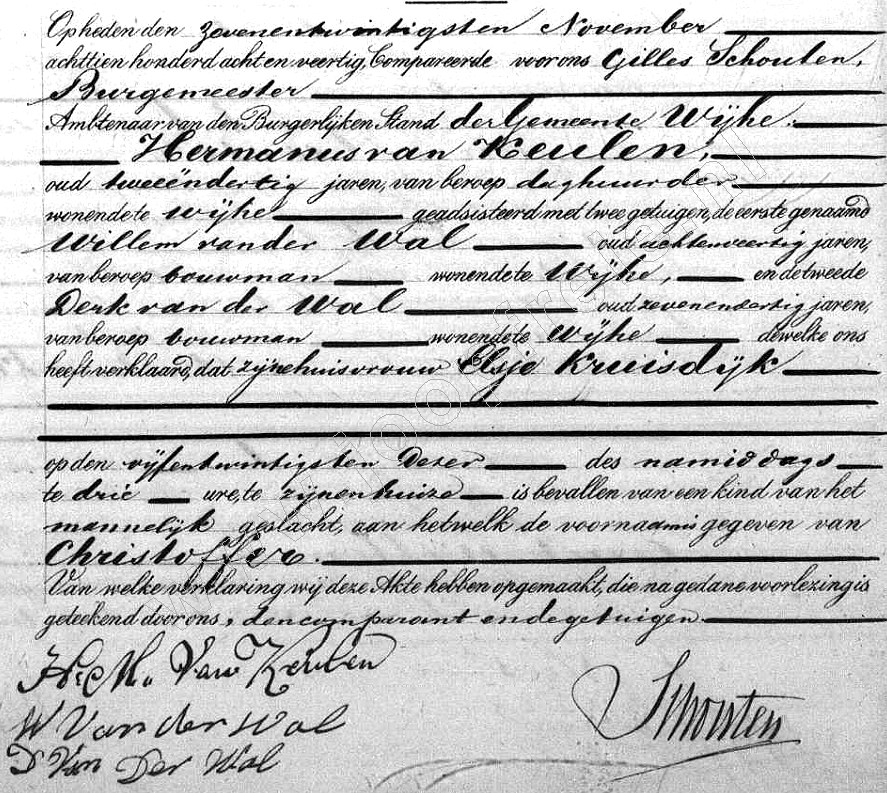 Op heden den zevenentwintigsten November
achttien honderd acht en veertig, Compareerde voor ons Gilles Schouten,
Burgemeester
Ambtenaar van den Burgerlijken Stand der Gemeente Wijhe.
Hermanus van Keulen,
oud tweeëndertig jaren, van beroep daghuurder
wonende te Wijhe geadsisteerd met twee getuigen, de eerste genaamd
Willem van der Wal oud achtenveertig jaren,
van beroep bouwman wonende te Wijhe, en de tweede
Derk van der Wal oud zevenendertig jaren,
van beroep bouwman wonende te Wijhe dewelke ons
heeft verklaard, dat zijne huisvrouw Elsje Kruisdijk
op den vijfentwintigsten Dezer des namiddags
te drie ure, te zijnen huize is bevallen van een kind van het
mannelijk geslacht, aan hetwelk de voornaam is gegeven van
Christoffer.
Van welke verklaring wij deze Akte hebben opgemaakt, die na gedane voorlezing is
geteekend door ons, den comparant en de getuigen.
Van Keulen
Schouten
W Van der Wal
D Van Der Wal